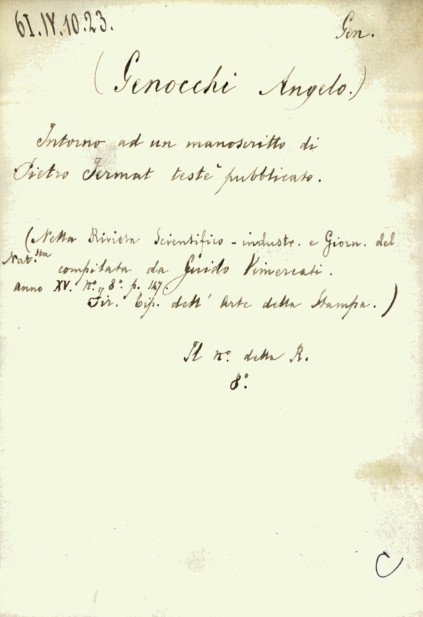 61.IV.10.23.
Gen.
(Genocchi Angelo.)
Intorno ad un manoscritto di
Pietro Fermat testè pubblicato.
(Nella Rivista Scientifico-industr. e Giorn. del
Nat.sta compilata da Guido Vimercati.
anno XV. n.º 8º. p. 147
Fir. Tip. dell' Arte della Stampa.)
Il nº. della R.
8º.
C